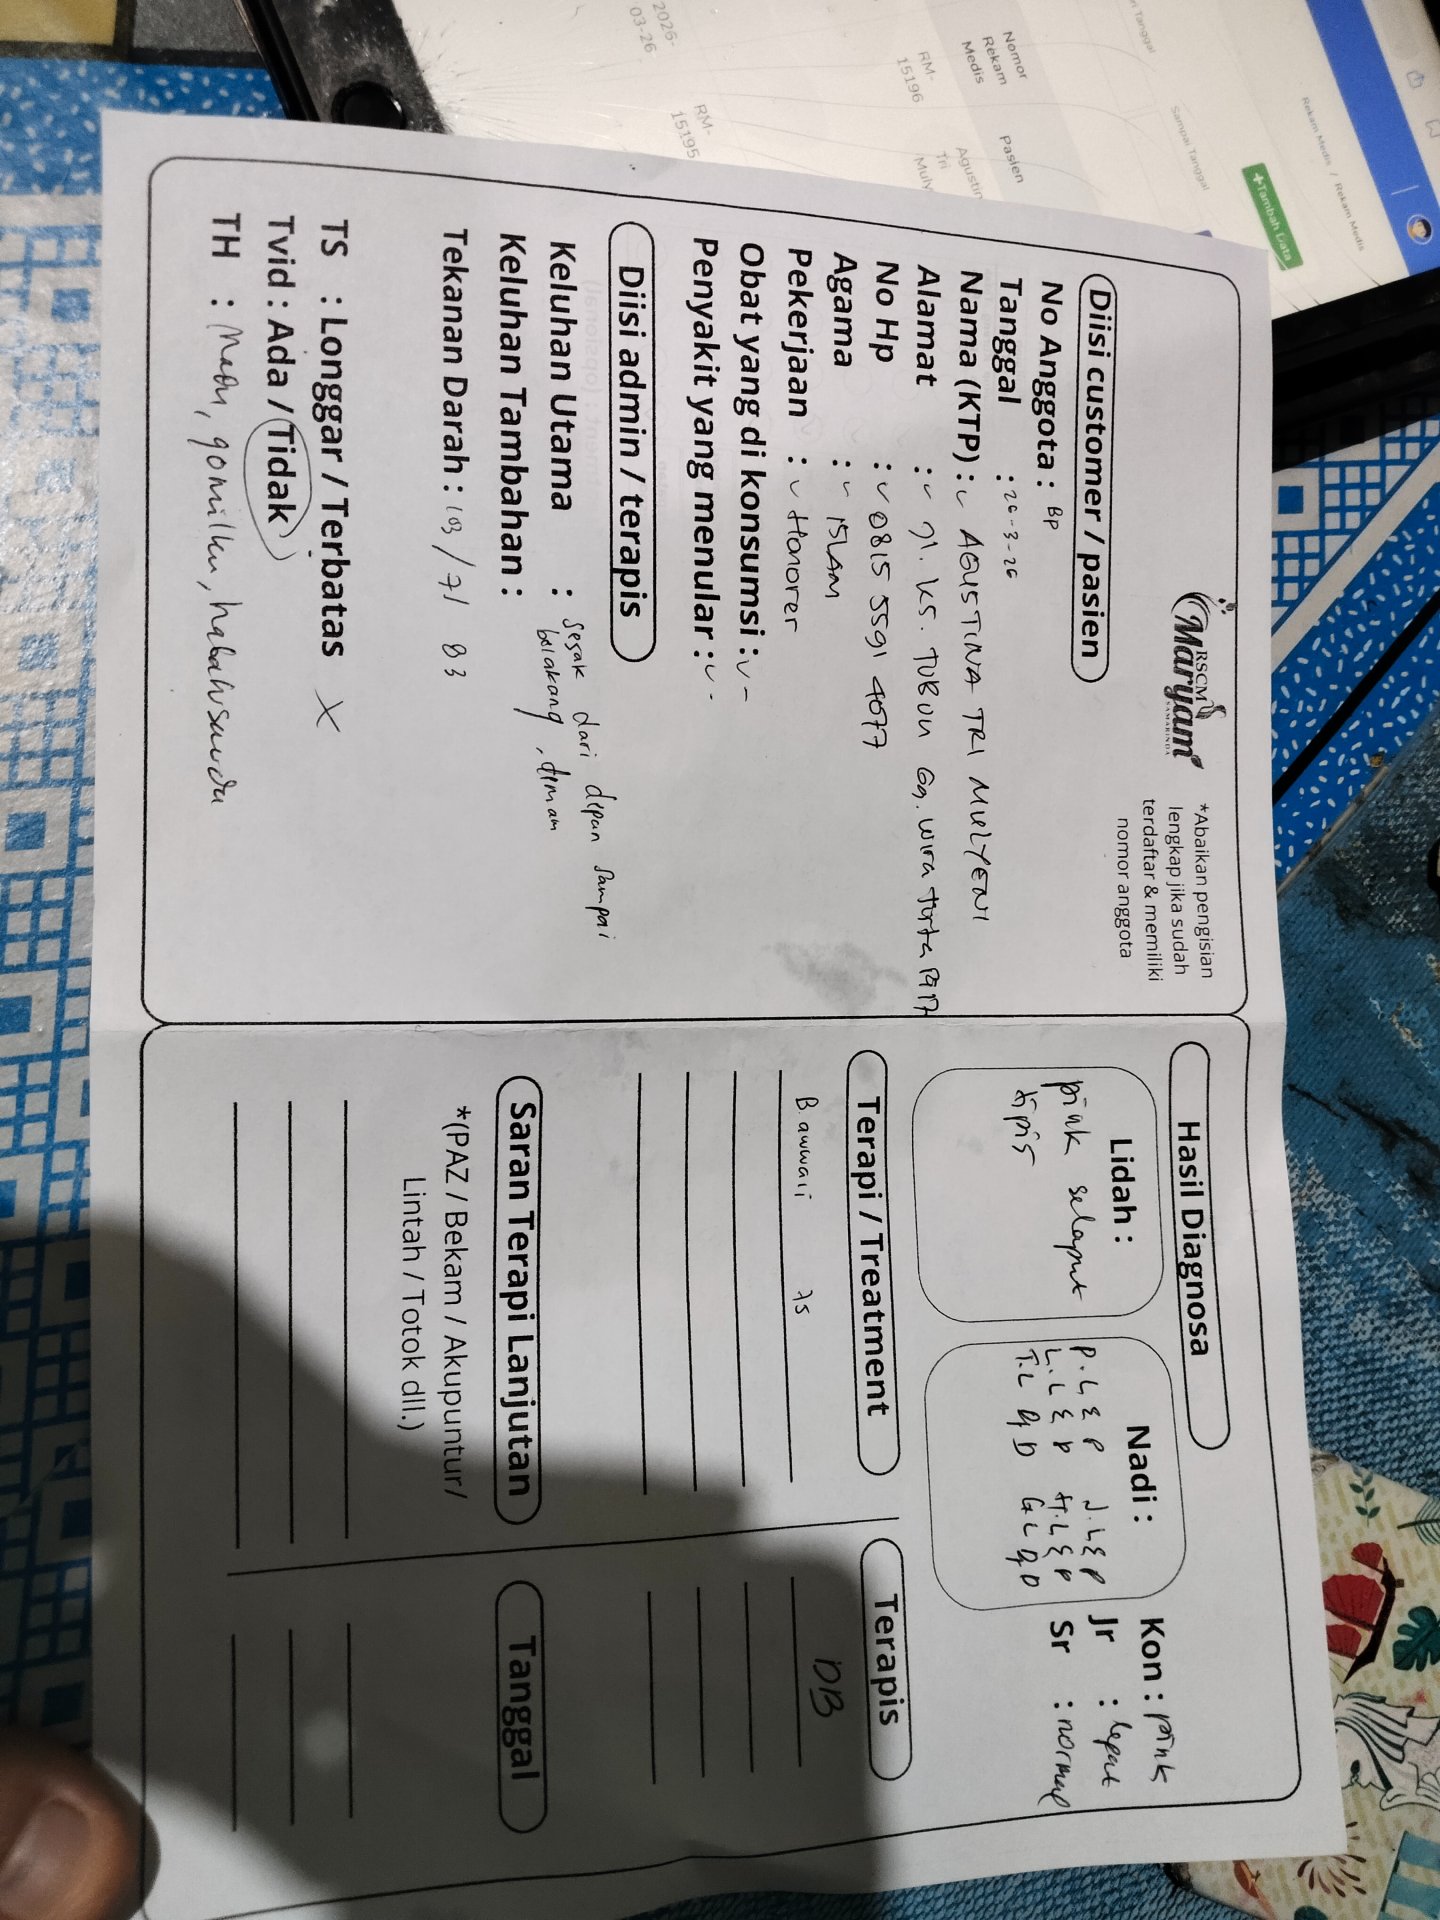 RSCM
Maryam
SAMARINDA
*Abaikan pengisian
lengkap jika sudah
terdaftar & memiliki
nomor anggota
Diisi customer / pasien
No Anggota : BP
Tanggal : 26-3-26
Nama (KTP) : AGUSTINA TRI MULYENI
Alamat : Jl. KS. TUBUN Gg. Wira tirta
No Hp : 0815 5591 4077
Agama : ISLAM
Pekerjaan : Honorer
Obat yang di konsumsi : -
Penyakit yang menular : -
Diisi admin / terapis
Keluhan Utama : sesak dari depan sampai
belakang, demam
Keluhan Tambahan :
Tekanan Darah : 103 / 71 83
TS : Longgar / Terbatas X
Tvid : Ada / Tidak
TH : Madu, habahsauda
Hasil Diagnosa
Lidah :
pink selaput
tipis
Nadi :
P.L E P J.L E P
L.L E P H.L E P
T.L D G L D
Kon : pink
Jr : cepat
Sr : normal
Terapi / Treatment
B. awwali 75
Terapis
DB
Saran Terapi Lanjutan
*(PAZ / Bekam / Akupuntur/
Lintah / Totok dll.)
Tanggal
Rekam Medis / Rekam Medis
+Tambah Data
Sampai Tanggal
Tanggal
Nomor
Rekam
Medis
Pasien
RM-
15196
Agustin
Tri
Muly
RM-
15195
2026-
03-26